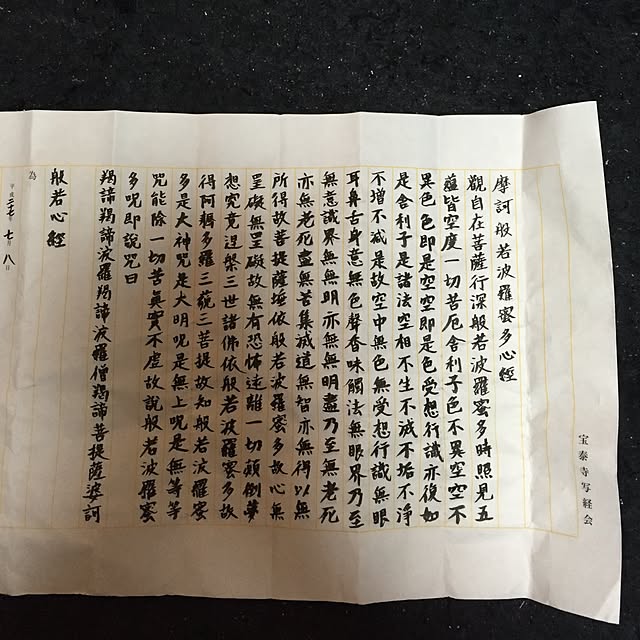 宝泰寺写経会
摩訶般若波羅蜜多心經
觀自在菩薩行深般若波羅蜜多時照見五
蘊皆空度一切苦厄舍利子色不異空空不
異色色即是空空即是色受想行識亦復如
是舍利子是諸法空相不生不滅不垢不淨
不增不減是故空中無色無受想行識無眼
耳鼻舌身意無色聲香味觸法無眼界乃至
無意識界無無明亦無無明盡乃至無老死
亦無老死盡無苦集滅道無智亦無得以無
所得故菩提薩埵依般若波羅蜜多故心無
罣礙無罣礙故無有恐怖遠離一切顛倒夢
想究竟涅槃三世諸佛依般若波羅蜜多故
得阿耨多羅三藐三菩提故知般若波羅蜜
多是大神呪是大明呪是無上呪是無等等
呪能除一切苦真實不虛故說般若波羅蜜
多呪即說呪曰
羯諦羯諦波羅羯諦波羅僧羯諦菩提薩婆訶
般若心經
為
平成二十七年七月八日